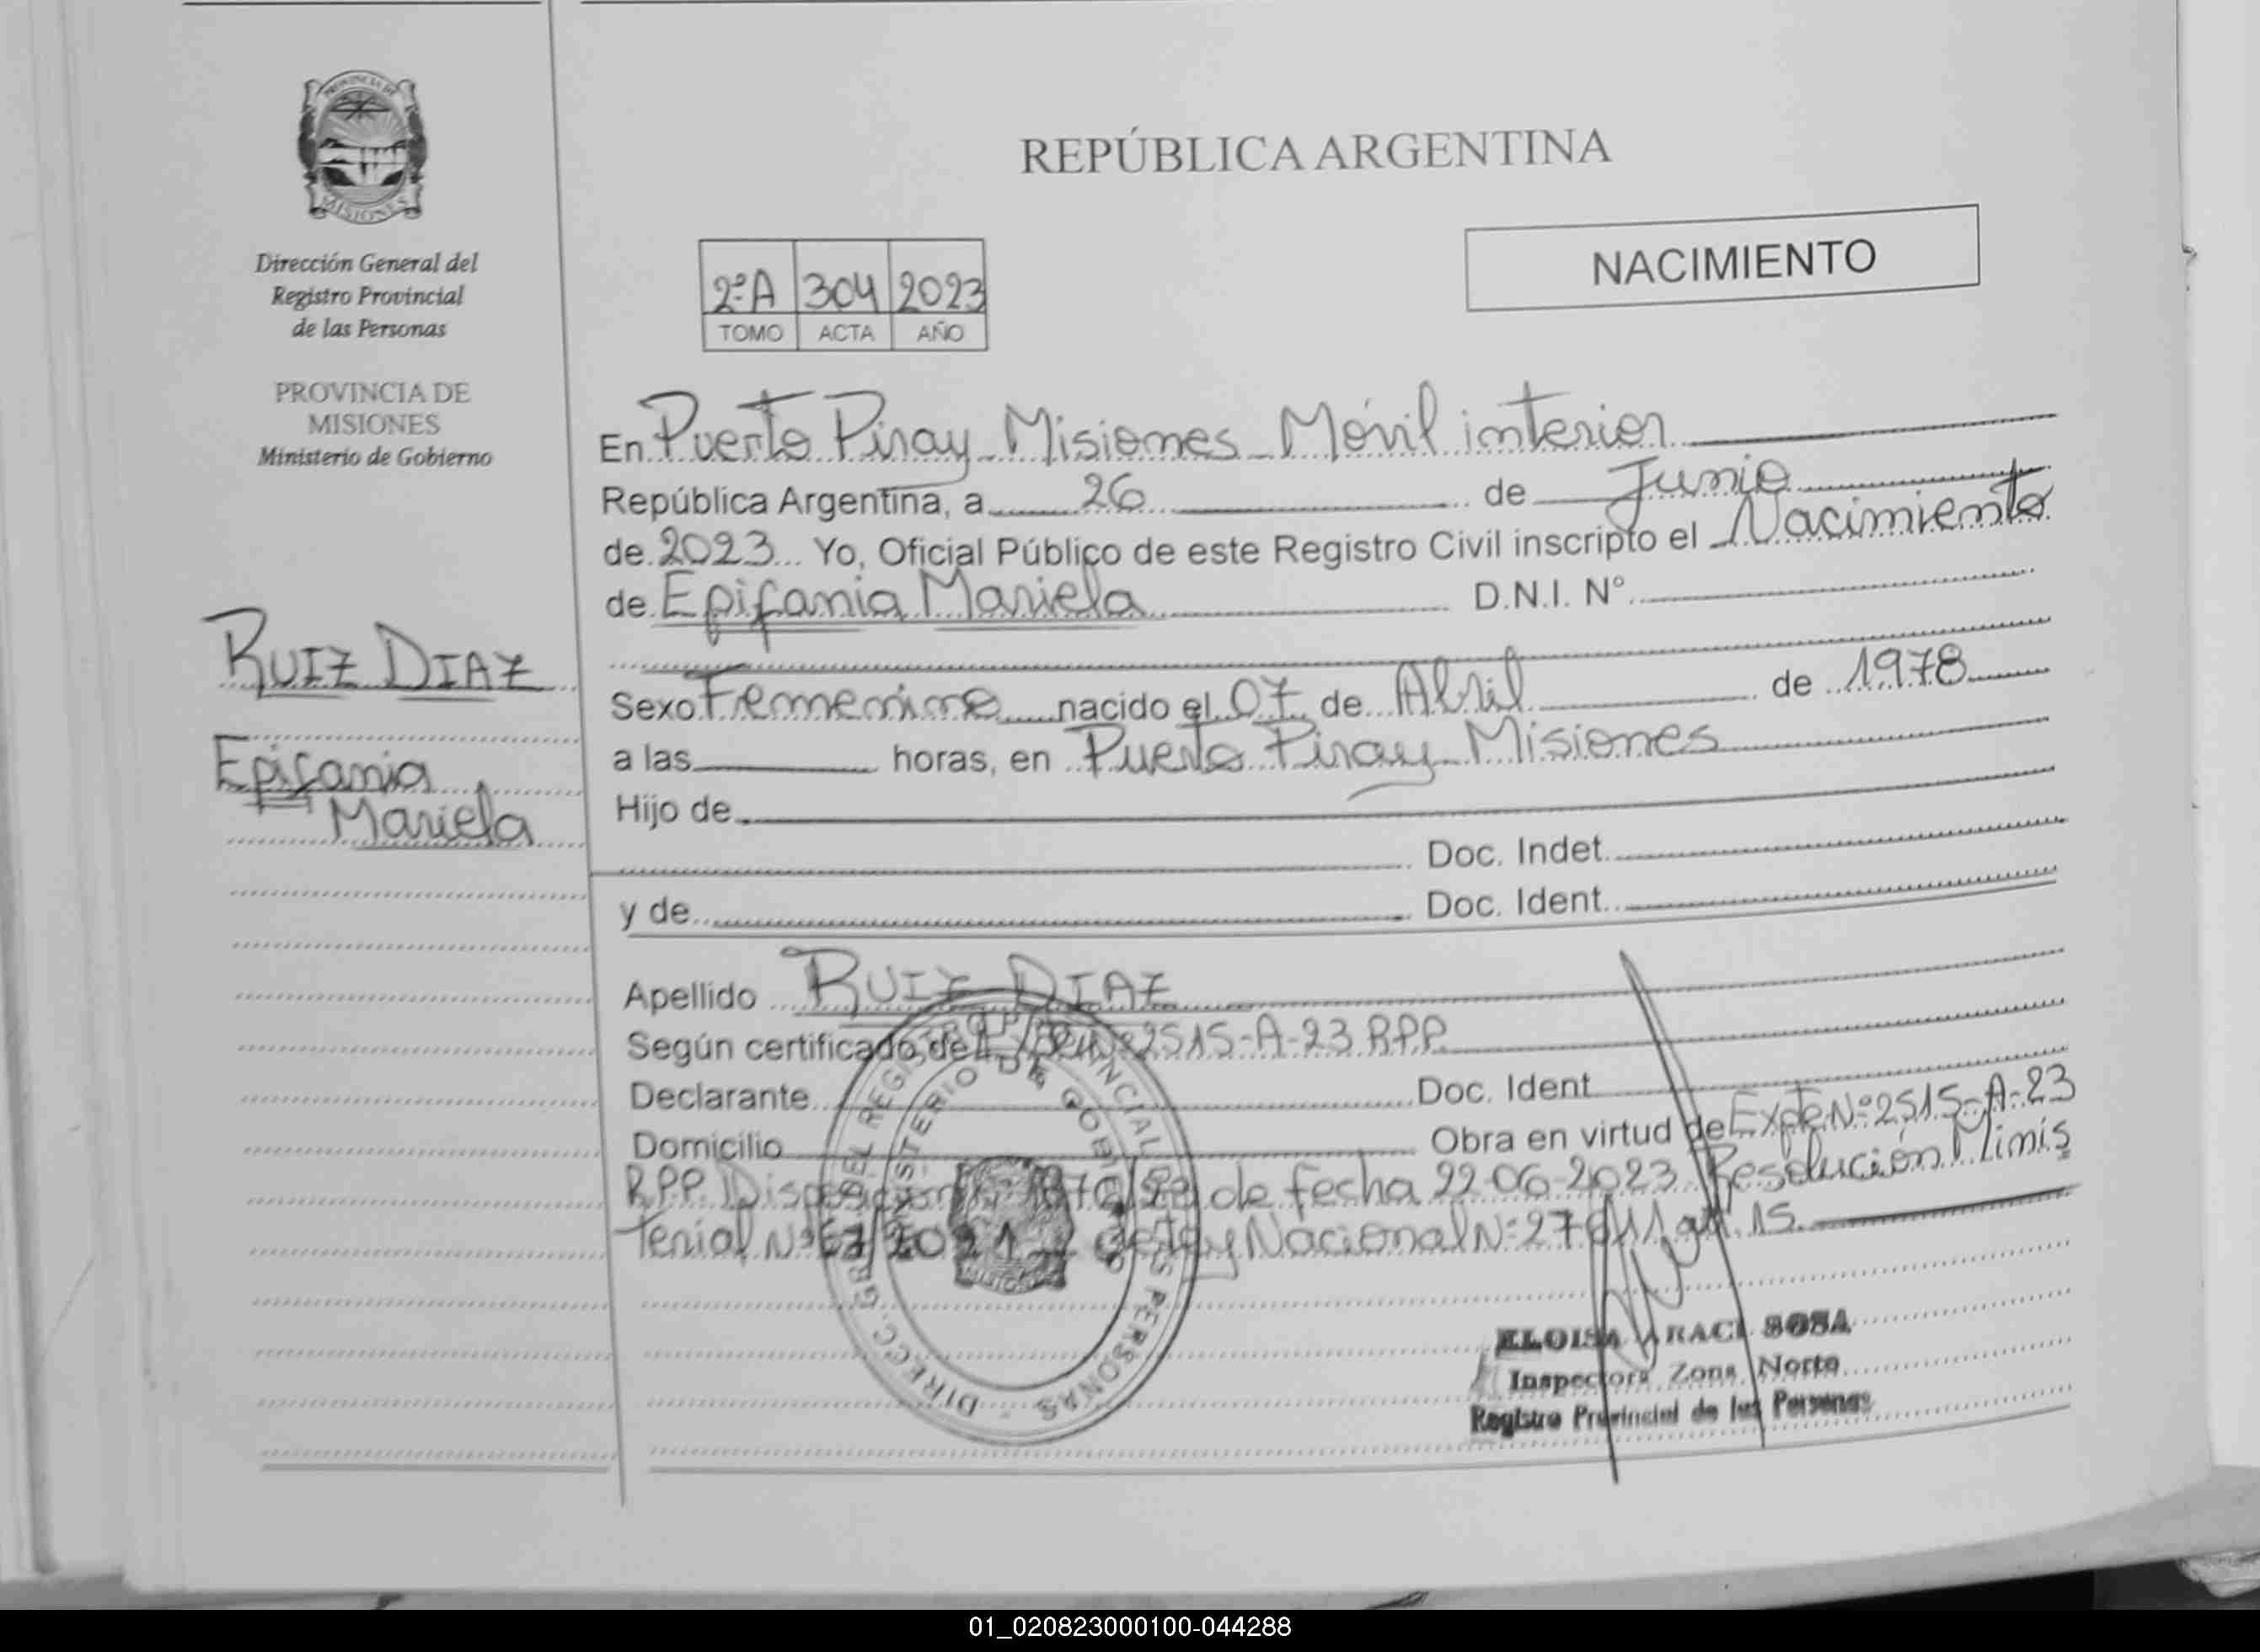 PROVINCIA DE
MISIONES
Dirección General del
Registro Provincial
de las Personas
PROVINCIA DE
MISIONES
Ministerio de Gobierno
RUIZ DIAZ
Epifania
Mariela
REPÚBLICA ARGENTINA
NACIMIENTO
2ºA 304 2023
TOMO ACTA AÑO
En Puerto Piray Misiones Móvil interior
República Argentina, a 26 de Junio
de 2023 Yo, Oficial Público de este Registro Civil inscripto el Nacimiento
de Epifania Mariela D.N.I. Nº
Sexo Femenino nacido el 07 de Abril de 1978
a las horas, en Puerto Piray Misiones
Hijo de
Doc. Indet.
y de Doc. Ident.
Apellido RUIZ DIAZ
Según certificado de Nº 2515-A-23 RPP
Declarante Doc. Ident.
Domicilio Obra en virtud de Expte Nº 2515-A-23
RPP. de fecha 22-06-2023 Resolución Minis
terial Nº 67/2021 Nacional Nº 15.
DIREC. GRAL. DEL REGISTRO PROVINCIAL DE LAS PERSONAS
MINISTERIO DE GOBIERNO
MISIONES
ELOISA ARACI SOSA
Inspectora Zona Norte
Registro Provincial de las Personas
01_020823000100-044288